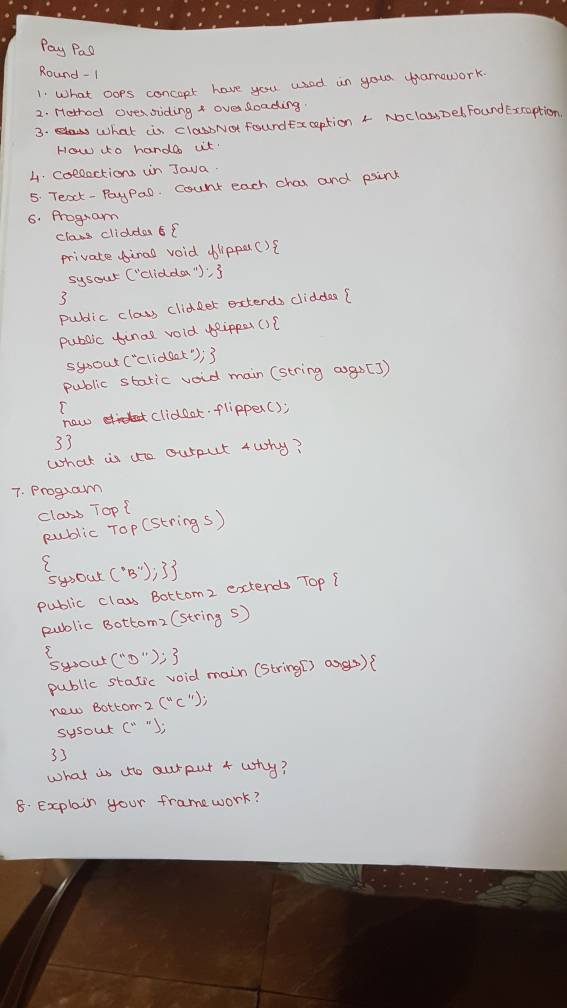 Pay Pal
Round - 1
1. What OOPS concept have you used in your framework.
2. Method overriding & overloading.
3. What is ClassNotFoundException & NoClassDefFoundException.
How to handle it.
4. Collections in Java.
5. Text - PayPal. Count each char and print
6. Program
class clidder {
private final void flipper() {
sysout ("clidder"); }
}
public class clidlet extends clidder {
public final void flipper () {
sysout ("clidlet"); }
public static void main (string args [])
{
new clidlet.flipper();
}}
what is the output & why?
7. Program
class Top {
public Top (String s)
{
sysout ("B"); }}
public class Bottom2 extends Top {
public Bottom2 (String s)
{
sysout ("D"); }
public static void main (String[] args) {
new Bottom2 ("c");
sysout (" ");
}}
what is the output & why?
8. Explain your framework?